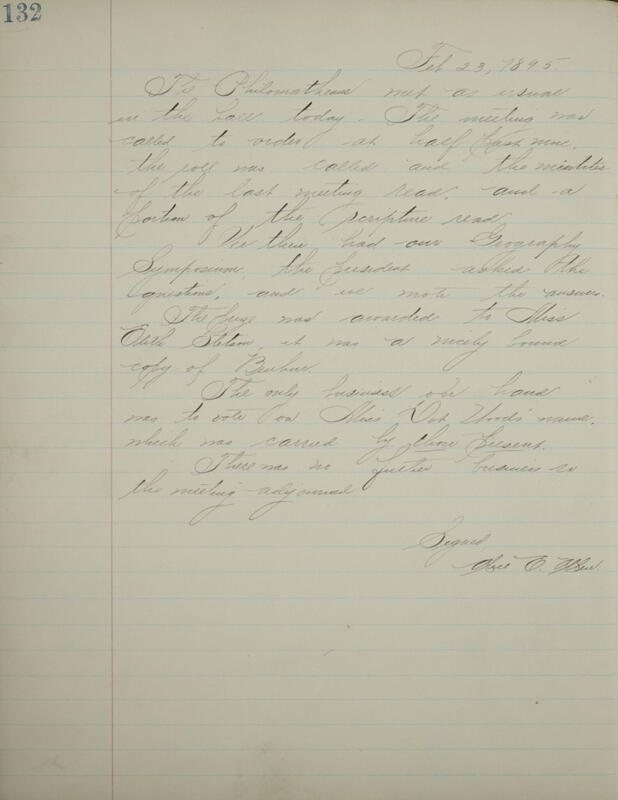 132
Feb 23, 1895
The Philomatheans met as usual
in the hall today. The meeting was
called to order at half past nine.
the roll was called and the minutes
of the last meeting read, and a
portion of the scripture read
We then had our Geography
Symposium, the President asked the
questions, and we wrote the answers.
The prize was awarded to Miss
Stetson, it was a nicely bound
copy of Benhur.
The only business on hand
was to vote on Miss Dot Wood's name,
which was carried by those present.
There was no further business so
the meeting adjourned
Signed
E.